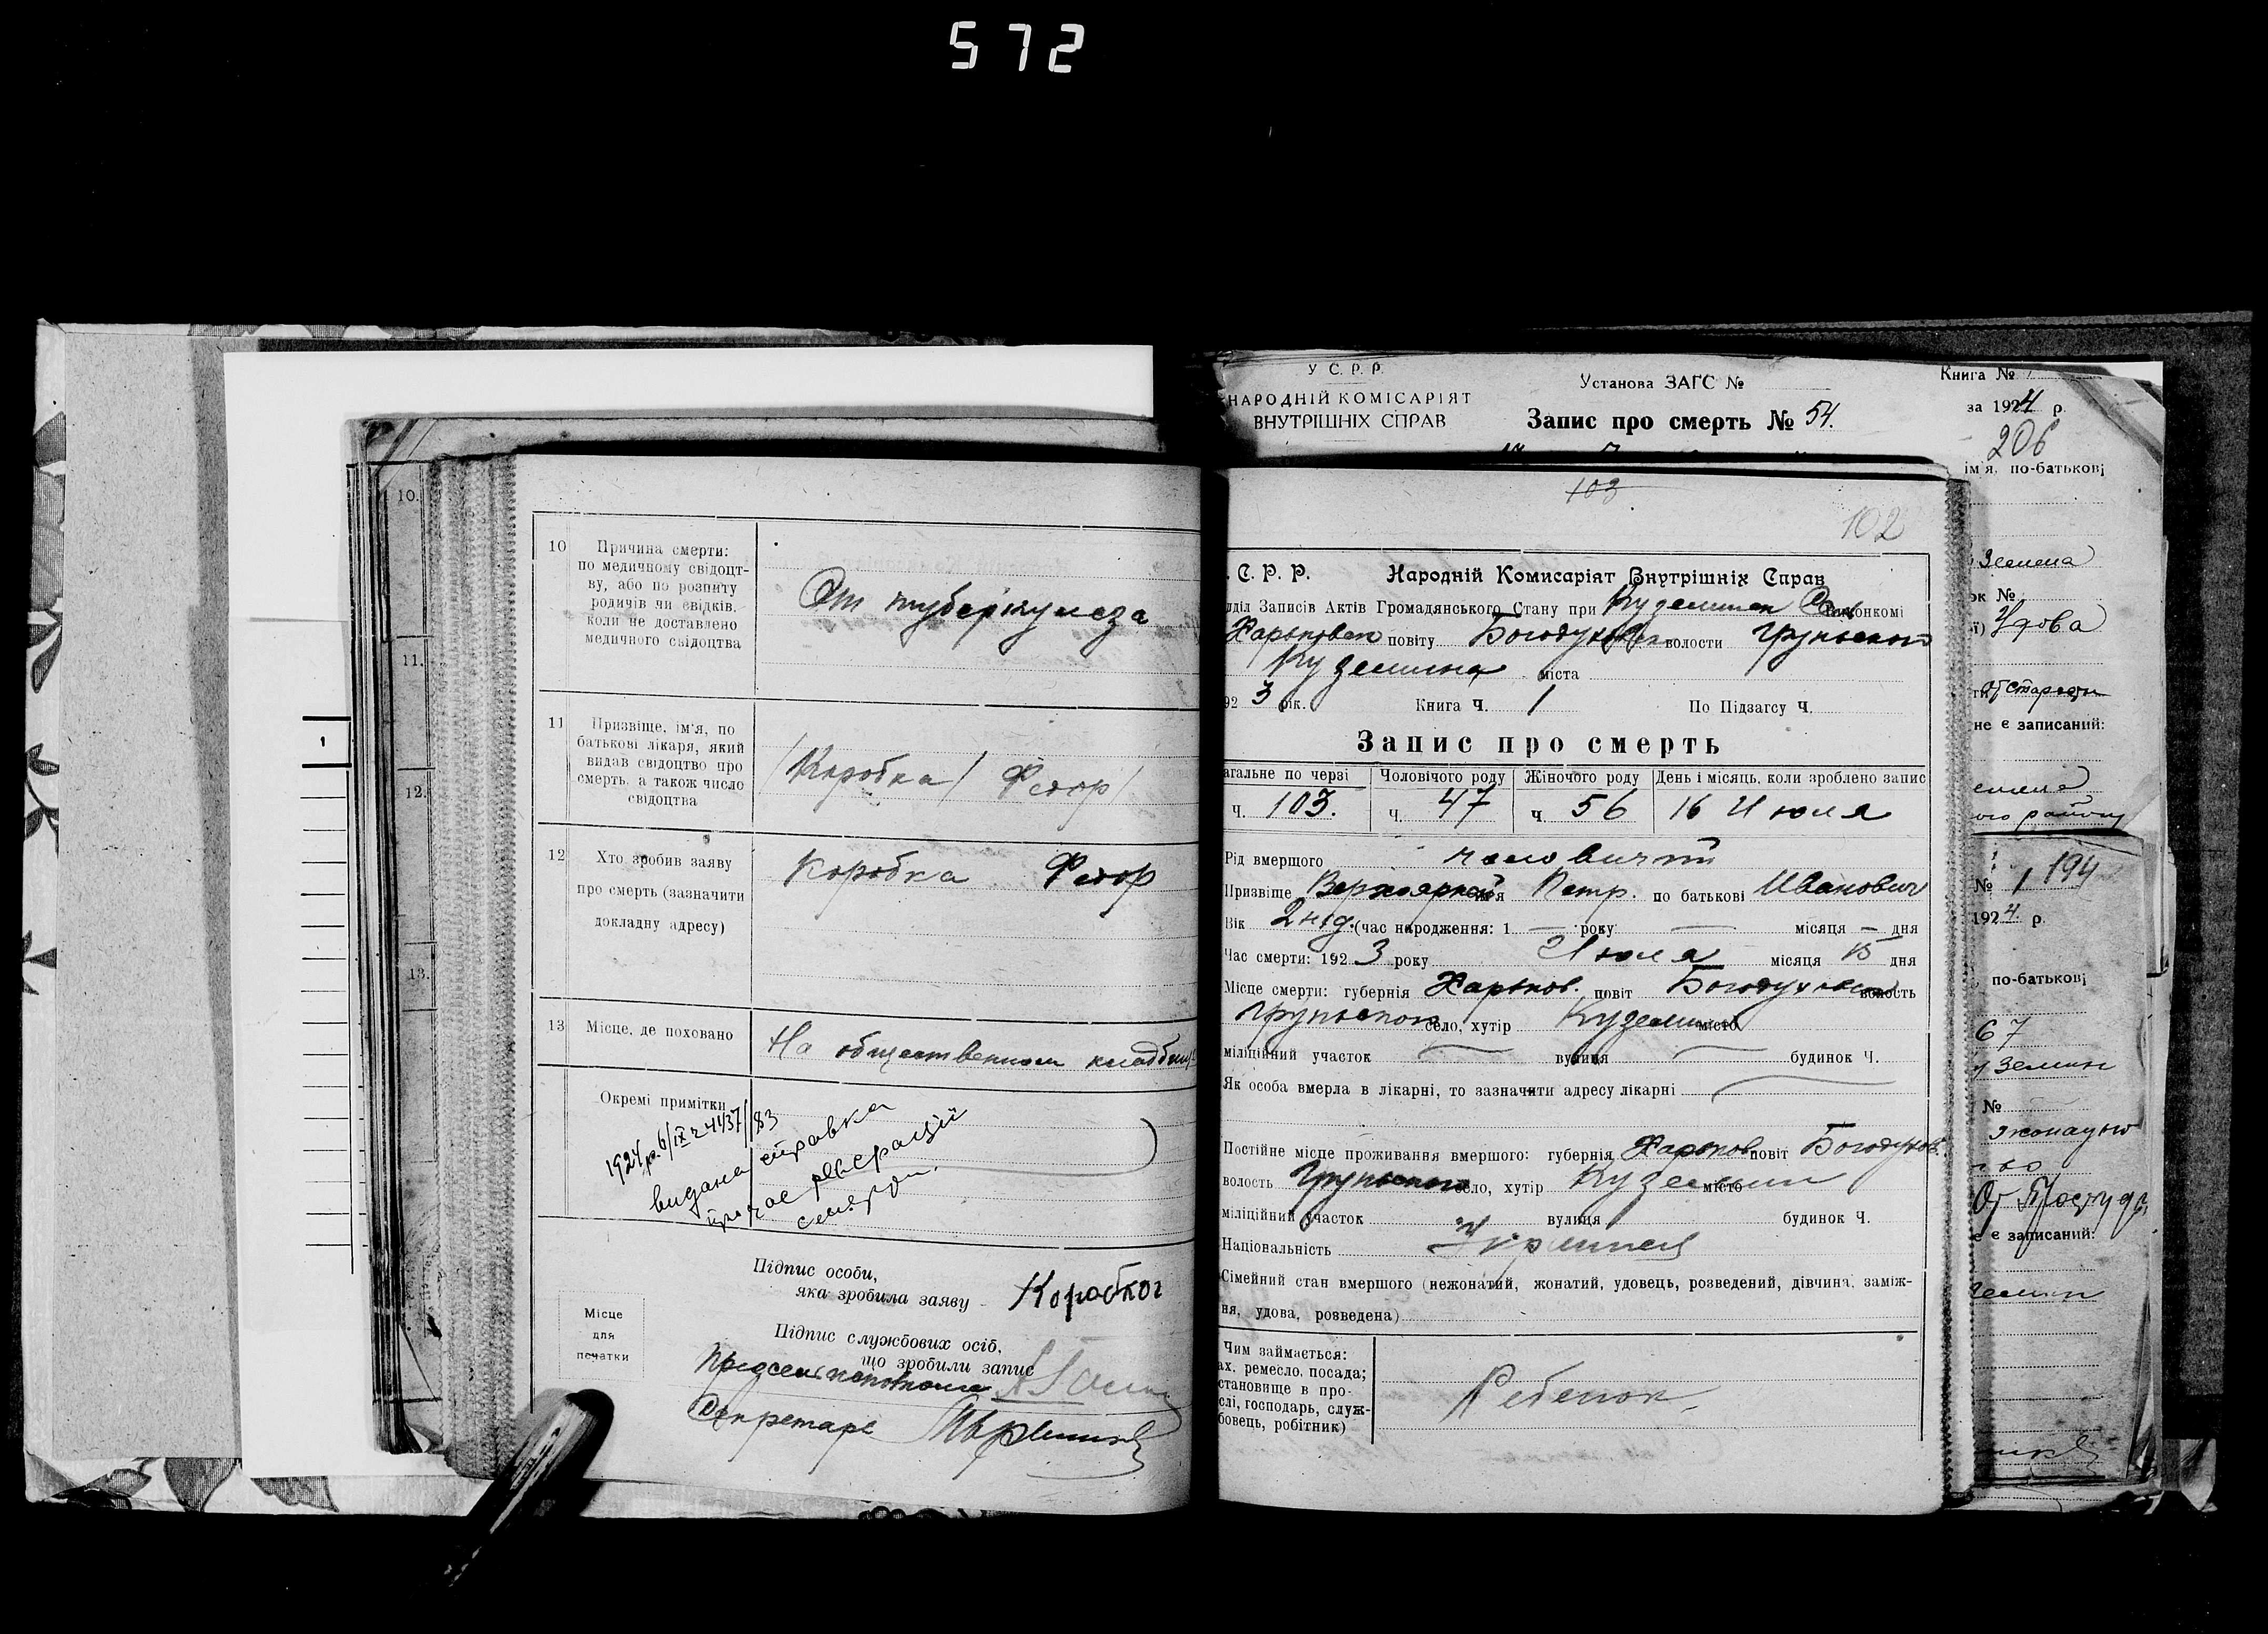 572
10.
11.
12.
13.
1
10
Причина смерти:
по медичному свідоцт-
ву, або по розпиту
родичів чи свідків,
коли не доставлено
медичного свідоцтва
От туберкулеза
11
Призвіще, ім'я, по
батькові лікаря, який
видав свідоцтво про
смерть, а також число
свідоцтва
/Коробка/ Федор/
12
Хто зробив заяву
про смерть (зазначити
докладну адресу)
Коробка Федор
13
Місце, де поховано
На общественном кладбищ
Окремі примітки
видана справка
про реєстрацій
смерти.
Підпис особи,
яка зробила заяву
Місце
для
печатки
Підпис службових осіб,
що зробили запис
Секретарь
У С. Р. Р.
НАРОДНІЙ КОМІСАРІЯТ
ВНУТРІШНІХ СПРАВ
Установа ЗАГС №
Запис про смерть № 54.
Книга №
за 1924 р.
206
ім'я, по-батькові
103
102
. С. Р. Р. Народній Комісаріят Внутрішніх Справ
діл Записів Актів Громадянського Стану при Куземин виконкомі
Харьковск повіту Богодуховск волости Грунського
Куземина міста
92 3 рік. Книга Ч. 1 По Підзагсу Ч.
Запис про смерть
агальне по черзі Чоловічого роду Жіночого роду День і місяць, коли зроблено запис
Ч. 103. Ч. 47 Ч 56 16 Июля
Рід вмерщого чоловичий
Призвіще ім'я Петр. по батькові Иванович
Вік 2 нед. (час народження: 1 — року — місяця — дня
Час смерти: 192 3 року Июля місяця 15 дня
Місце смерти: губернія Харьков. повіт Богодухов волость
Грунського село, хутір Куземин місто
міліційний участок вулиця будинок Ч.
Як особа вмерла в лікарні, то зазначити адресу лікарні
Постійне місце проживання вмершого: губернія Харьков повіт Богодухов.
волость Грунського село, хутір Куземин місто
міліційний участок вулиця будинок Ч.
Національність
Сімейний стан вмершого (нежонатий, жонатий, удовець, розведений, дівчина, заміж-
ня, удова, розведена)
Чим займається:
ах, ремесло, посада;
становище в про-
слі, господарь, служ-
бовець, робітник)
Ребенок
Зелена
ок №
ї) Удова
не є записаний:
№ 1 194
1924 р.
по-батькові
67
№
От Простуды
е є записаний: